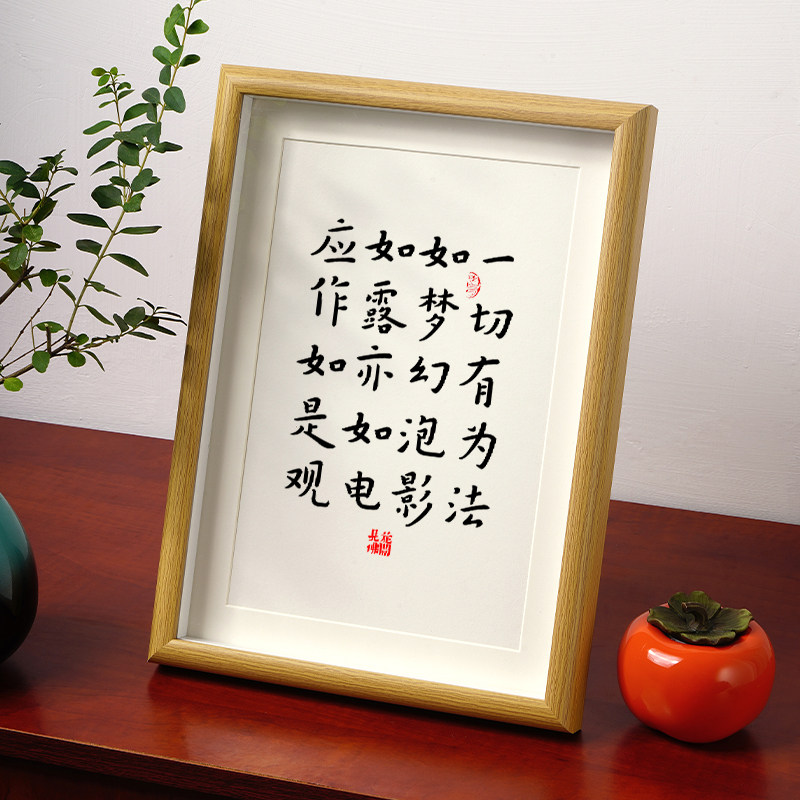 一切有为法
如梦幻泡影
如露亦如电
应作如是观
花開
見佛